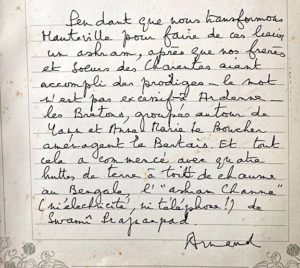 Pendant que nous transformons
Hauteville pour faire de ces lieux
un ashram, après que nos frères
et soeurs des Charentes aient
accompli des prodiges - le mot
n'est pas excessif à Ardenne -
les Bretons, groupés autour de
Yann et Anne Marie Le Boucher
aménagent le Bertais. Et tout
cela a commencé avec quatre
huttes de terre à toits de chaume
au Bengale, l'"ashram Channa"
(ni électricité, ni téléphone!) de
Swamî Prajnanpad.
Arnaud